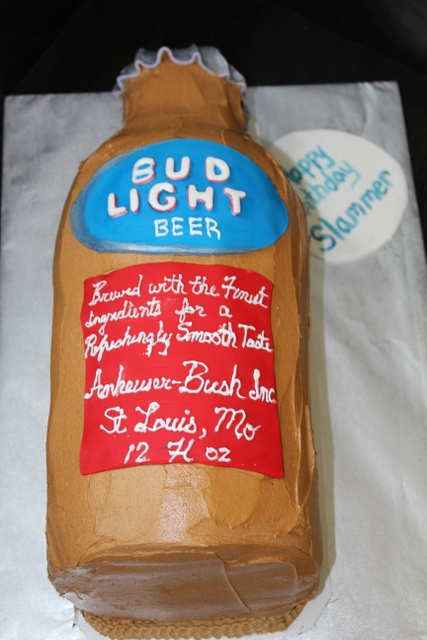 BUD
LIGHT
BEER
Happy
Birthday
Slammer
Brewed with the Finest
Ingredients for a
Refreshingly Smooth Taste
Anheuser-Bush Inc
St Louis, Mo
12 Fl oz